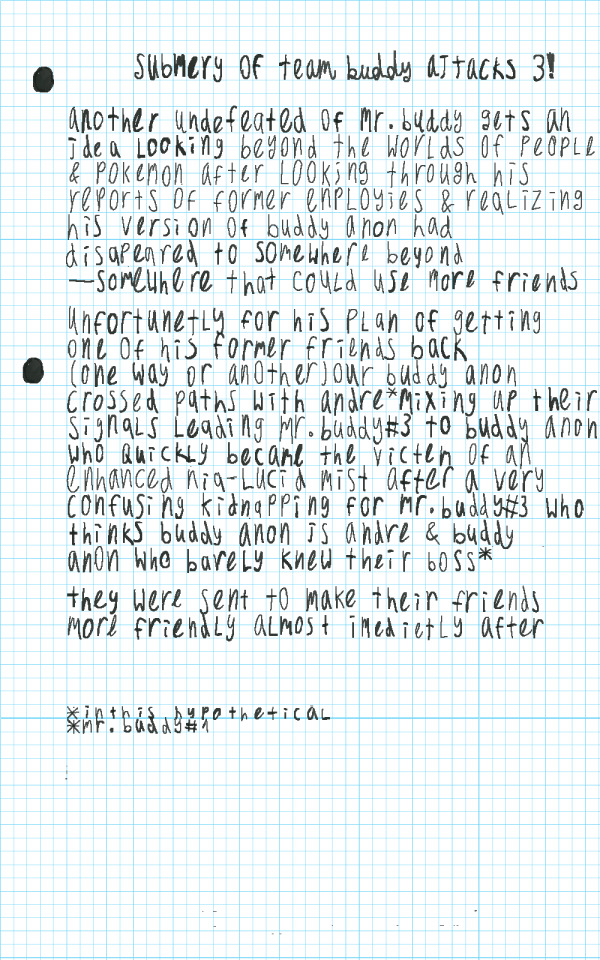 submery of team buddy attacks 3!
another undefeated of mr.buddy gets an
idea looking beyond the worlds of people
& pokemon after looking through his
reports of former enployies & realizing
his version of buddy anon had
disapeared to somewhere beyond
—somewhere that could use more friends
unfortunetly for his plan of getting
one of his former friends back
(one way or another)our buddy anon
crossed paths with andre*mixing up their
signals leading mr.buddy#3 to buddy anon
who quickly became the victem of an
enhanced nia-lucid mist after a very
confusing kidnapping for mr.buddy#3 who
thinks buddy anon is andre & buddy
anon who barely knew their boss*
they were sent to make their friends
more friendly almost imedietly after
*in this hypothetical
*mr.buddy#1